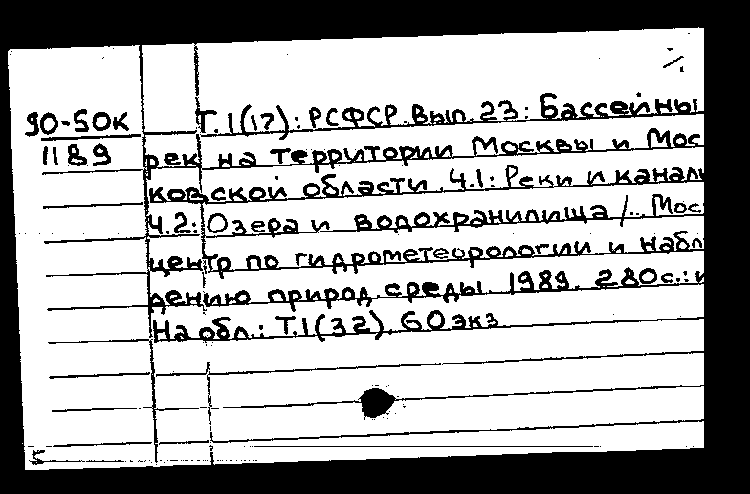 90-50к Т.1(17): РСФСР. Вып. 23: Бассейны
1189 рек на территории Москвы и Мос
ковской области. Ч.1: Реки и канал
Ч.2: Озера и водохранилища /... Мос
центр по гидрометеорологии и набл
дению природ. среды. 1989. 280с.: и
На обл.: Т.1(32). 60экз.